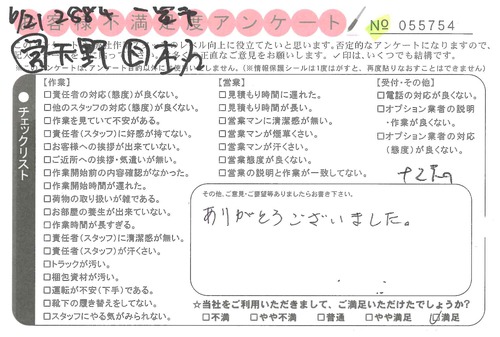 6/21 2884
お客様不満足度アンケート
№ 055754
レベル向上に役立てたいと思います。否定的なアンケートになりますので、
正直なご意見をお願いします。✓印は、いくつでも結構です。
チェックリスト
【作業】
□責任者の対応(態度)が良くない。
□他のスタッフの対応(態度)が良くない。
□作業を見ていて不安がある。
□責任者(スタッフ)に好感が持てない。
□お客様への挨拶が出来ていない。
□ご近所への挨拶・気遣いが無い。
□作業開始前の内容確認がなかった。
□作業開始時間が遅れた。
□荷物の取り扱いが雑である。
□お部屋の養生が出来ていない。
□作業時間が長すぎる。
□責任者(スタッフ)に清潔感が無い。
□責任者(スタッフ)が汗くさい。
□トラックが汚い。
□梱包資材が汚い。
□運転が不安(下手)である。
□靴下の履き替えをしてない。
□スタッフにやる気がみられない。
【営業】
□見積もり時間に遅れた。
□見積もり時間が長い。
□営業マンに清潔感が無い。
□営業マンが煙草くさい。
□営業マンが汗くさい。
□営業態度が良くない。
□営業の説明と作業が一致してない。
【受付・その他】
□電話の対応が良くない。
□オプション業者の説明
・作業が良くない。
□オプション業者の対応
(態度)が良くない。
その他、ご意見・ご要望等ありましたらお書き下さい。
ありがとうございました。
☆当社をご利用いただきまして、ご満足いただけたでしょうか?
□不満 □やや不満 □普通 □やや満足 ☑満足